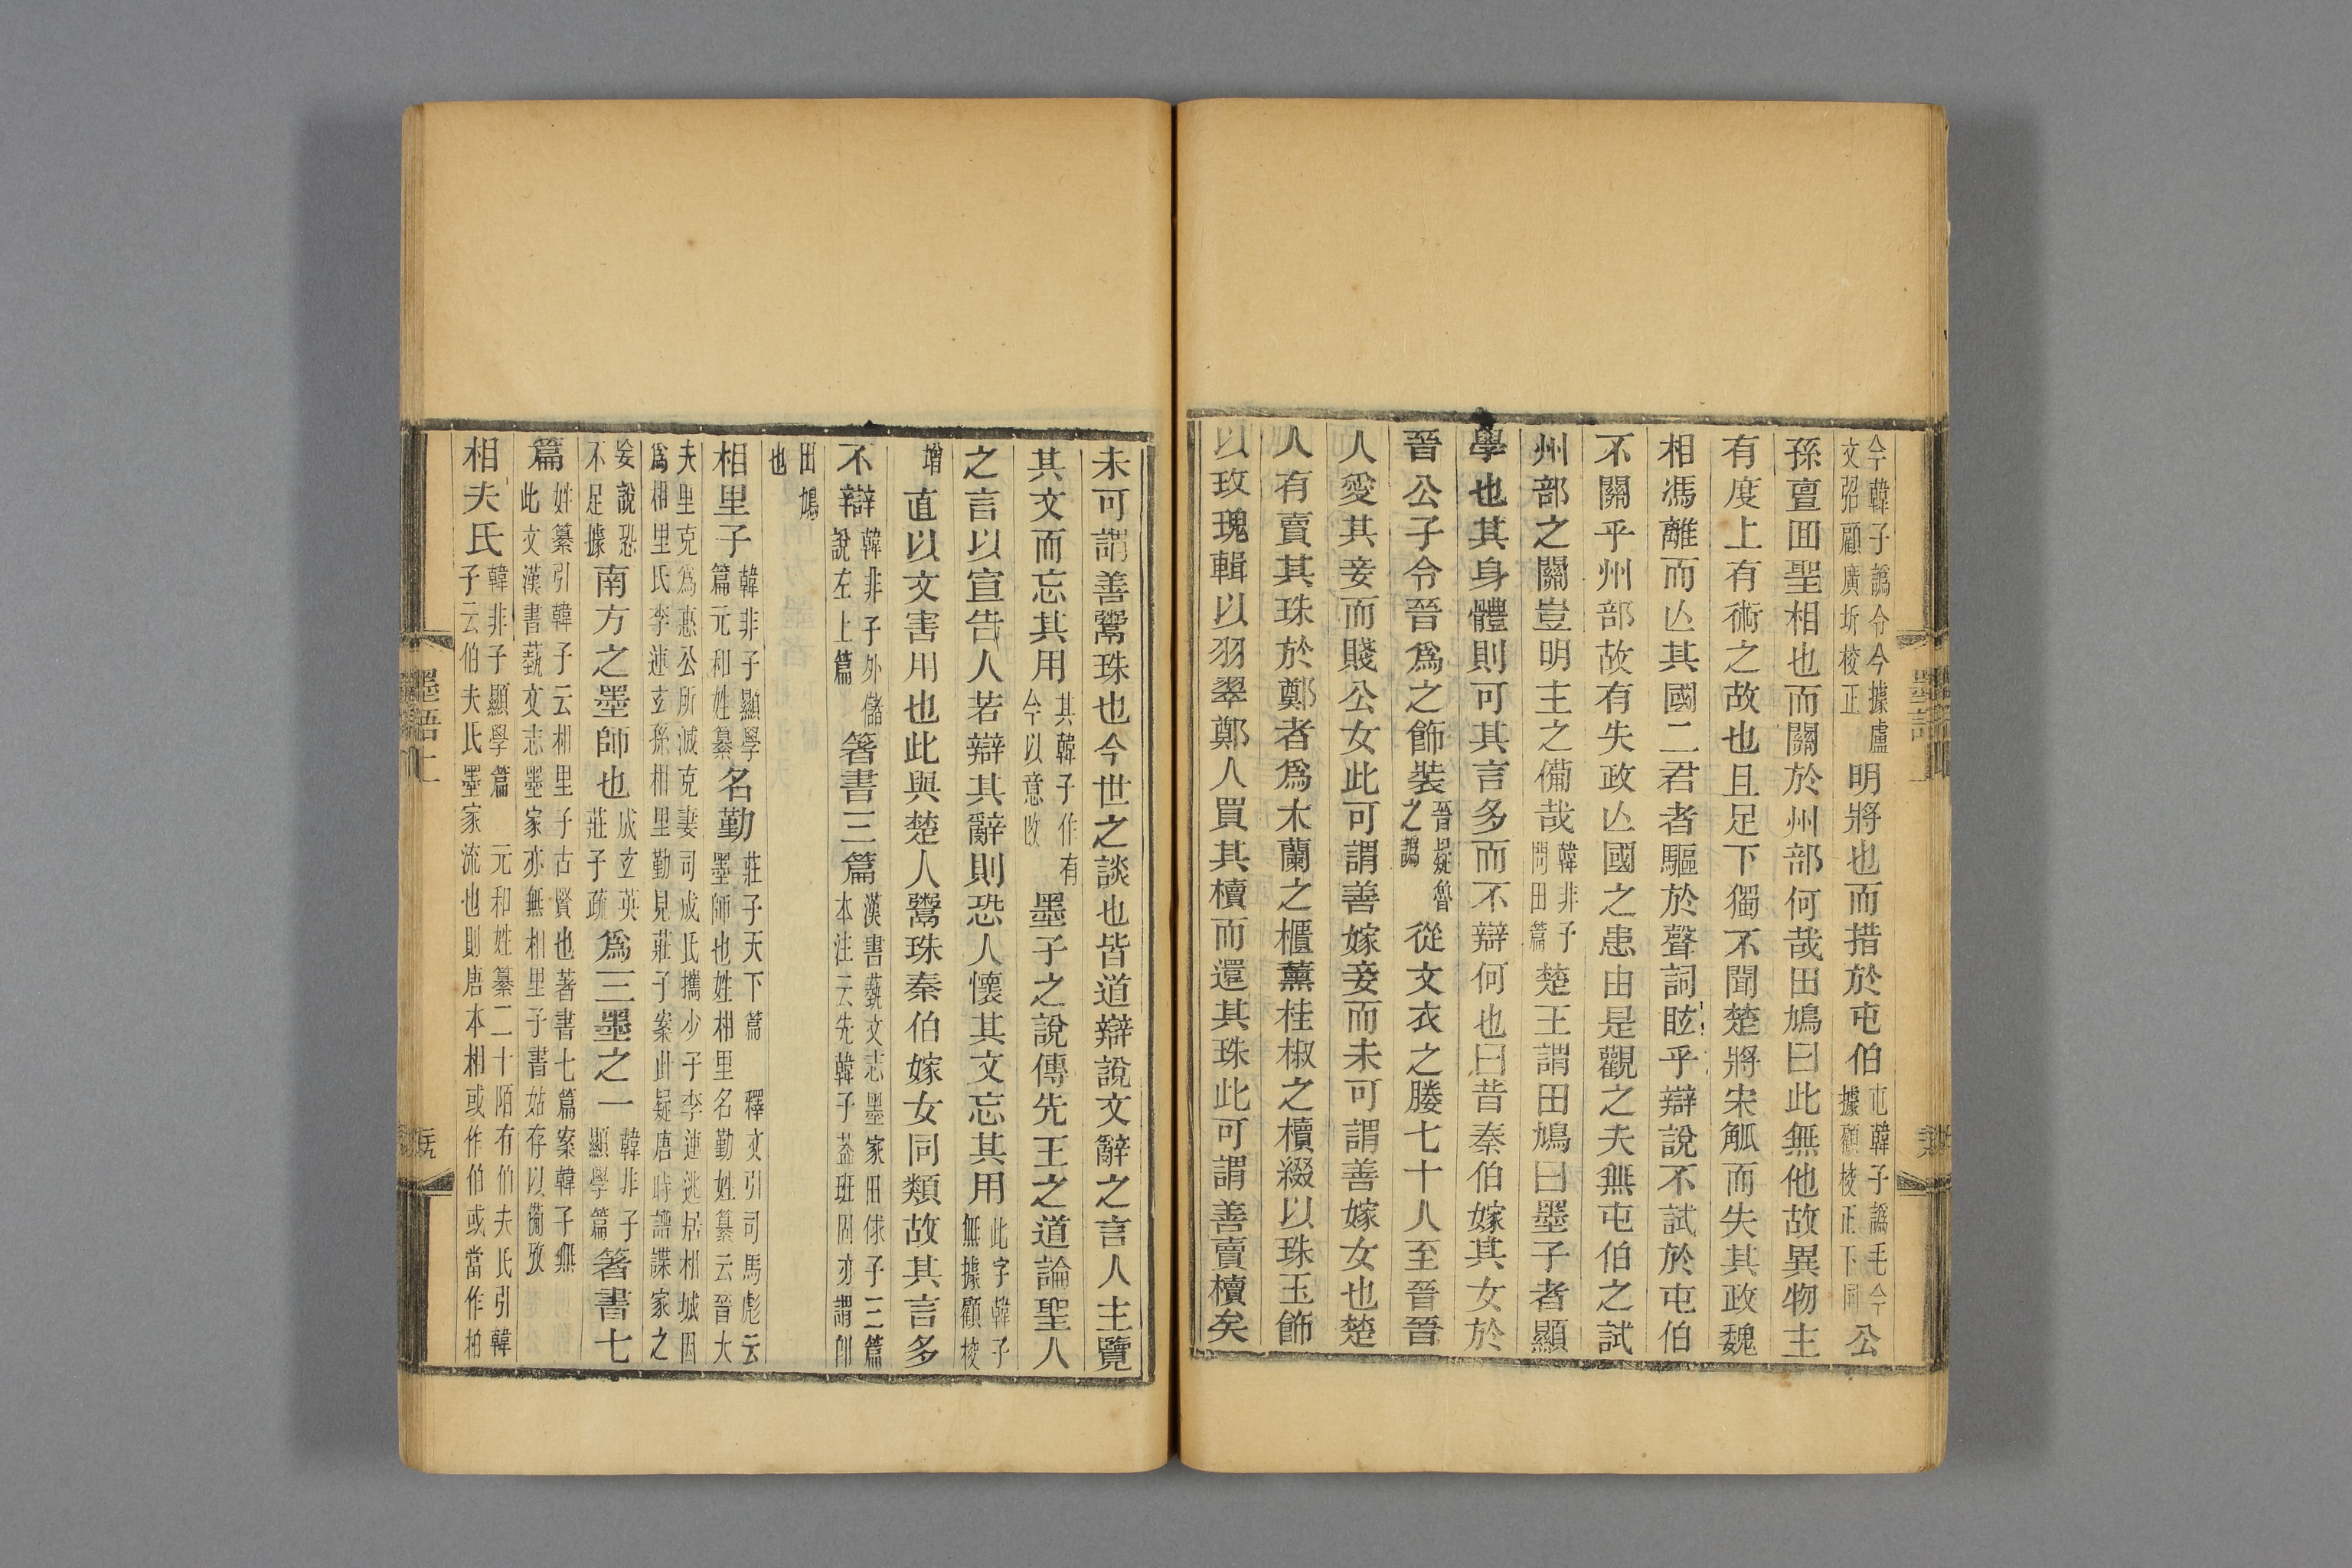 今韓子譌令今據盧
文弨顧廣圻校正明將也而措於屯伯屯韓子譌毛今
據顧校正下同公
孫亶回聖相也而關於州部何哉田鳩曰此無他故異物主
有度上有術之故也且足下獨不聞楚將宋觚而失其政魏
相馮離而亾其國二君者驅於聲詞眩乎辯說不試於屯伯
不關乎州部故有失政亾國之患由是觀之夫無屯伯之試
州部之關豈明主之備哉韓非子
問田篇楚王謂田鳩曰墨子者顯
學也其身體則可其言多而不辯何也曰昔秦伯嫁其女於
晉公子令晉爲之飾裝晉疑魯
之譌從文衣之媵七十人至晉晉
人愛其妾而賤公女此可謂善嫁妾而未可謂善嫁女也楚
人有賣其珠於鄭者爲木蘭之櫃薰桂椒之櫝綴以珠玉飾
以玫瑰輯以羽翠鄭人買其櫝而還其珠此可謂善賣櫝矣
未可謂善鬻珠也今世之談也皆道辯說文辭之言人主覽
其文而忘其用其韓子作有
今以意改墨子之說傳先王之道論聖人
之言以宣告人若辯其辭則恐人懷其文忘其用此字韓子
無據顧校
增直以文害用也此與楚人鬻珠秦伯嫁女同類故其言多
不辯韓非子外儲
說左上篇箸書三篇漢書藝文志墨家田俅子三篇
本注云先韓子葢班固亦謂卽
田鳩
也
相里子韓非子顯學
篇元和姓纂名勤莊子天下篇 釋文引司馬彪云
墨師也姓相里名勤姓纂云晉大
夫里克爲惠公所滅克妻司成氏攜少子李連逃居相城因
爲相里氏李連玄孫相里勤見莊子案此疑唐時譜諜家之
妄說恐
不足據南方之墨師也成玄英
莊子疏爲三墨之一韓非子
顯學篇箸書七
篇姓纂引韓子云相里子古賢也著書七篇案韓子無
此文漢書藝文志墨家亦無相里子書姑存以備攷
相夫氏韓非子顯學篇 元和姓纂二十陌有伯夫氏引韓
子云伯夫氏墨家流也則唐本相或作伯或當作柏
墨語上